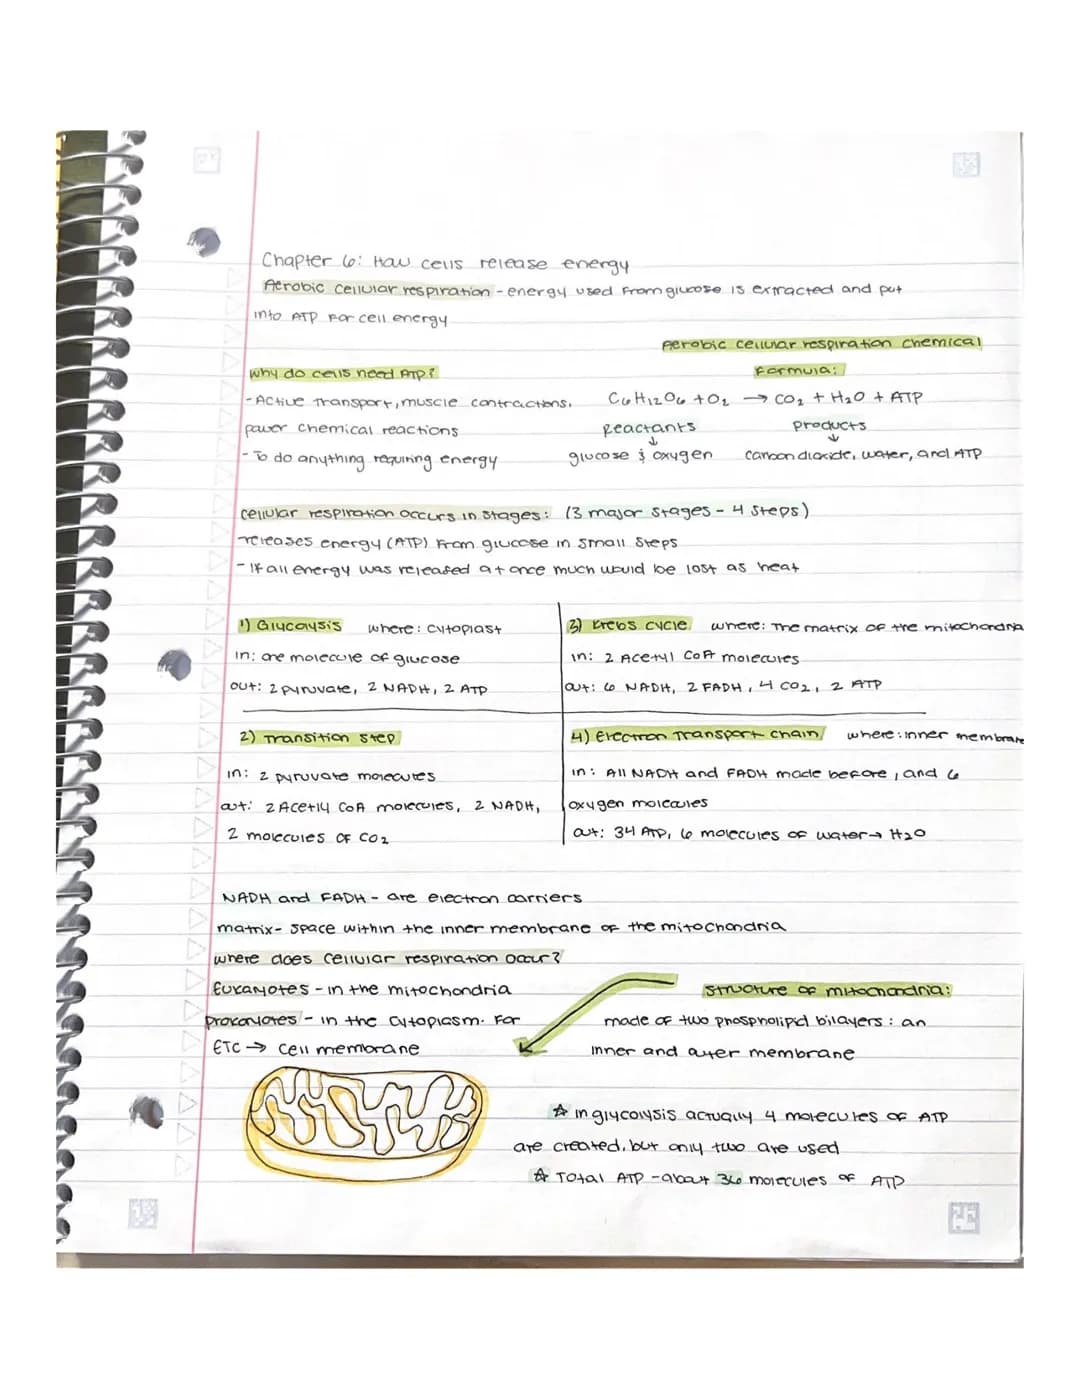 Chapter 6: How cells release energy
Aerobic cellular respiration - energy used from glucose is extracted and put
into ATP for cell energy
Aerobic cellular respiration chemical
Formula:
Why do cells need ATP?
- Active transport, muscle contractions,
power chemical reactions
- To do anything requiring energy
C6H12O6 + O2 → CO2 + H2O + ATP
Reactants products
↓ ↓
glucose & oxygen carbon dioxide, water, and ATP
Cellular respiration occurs in stages: (3 major stages - 4 steps)
-releases energy (ATP) from glucose in small steps
- If all energy was released at once much would be lost as heat
1) Glycolysis where: cytoplast
in: one molecule of glucose
out: 2 pyruvate, 2 NADH, 2 ATP
3) Krebs cycle where: The matrix of the mitochondria
in: 2 Acetyl CoA molecules
out: 6 NADH, 2 FADH, 4 CO2, 2 ATP
2) Transition step
in: 2 pyruvate molecules
out: 2 Acetly CoA molecules, 2 NADH,
2 molecules of CO2
4) Electron Transport chain where: inner membrane
in: All NADH and FADH made before, and 6
oxygen molecules
out: 34 ATP, 6 molecules of water → H2O
NADH and FADH - are electron carriers
matrix- space within the inner membrane of the mitochondria
where does cellular respiration occur?
Eukaryotes - in the mitochondria
prokaryotes - in the cytoplasm. For
ETC → cell membrane
structure of mitochondria:
made of two phospholipid bilayers: an
inner and outer membrane
☆ in glycolysis actually 4 molecules of ATP
are created, but only two are used
☆ Total ATP - about 36 molecules of ATP